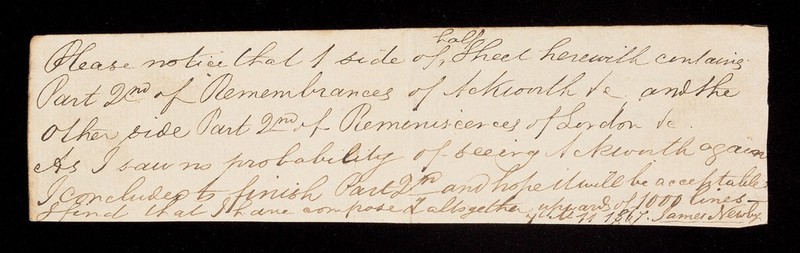 Please notice that 1 side of half Sheet herewith contains
Part 2nd of Remembrances of Ackworth &c and the
Other side Part 2nd of Reminiscences of London &c.
As I saw no probability of seeing Ackworth again
I concluded to finish Part 2nd and hope it will be acceptable.
I find that I have composed altogether upwards of 1000 lines—
1867. James Newby.